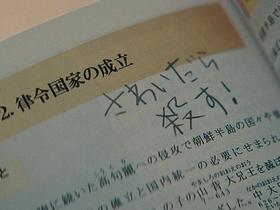 2. 律令国家の成立
さわいだら
殺す!
に続いた高句麗への侵攻で朝鮮半島の国々や倭
の確立と国内統一の必要にせまられ
の子の山背大兄王を滅ぼ